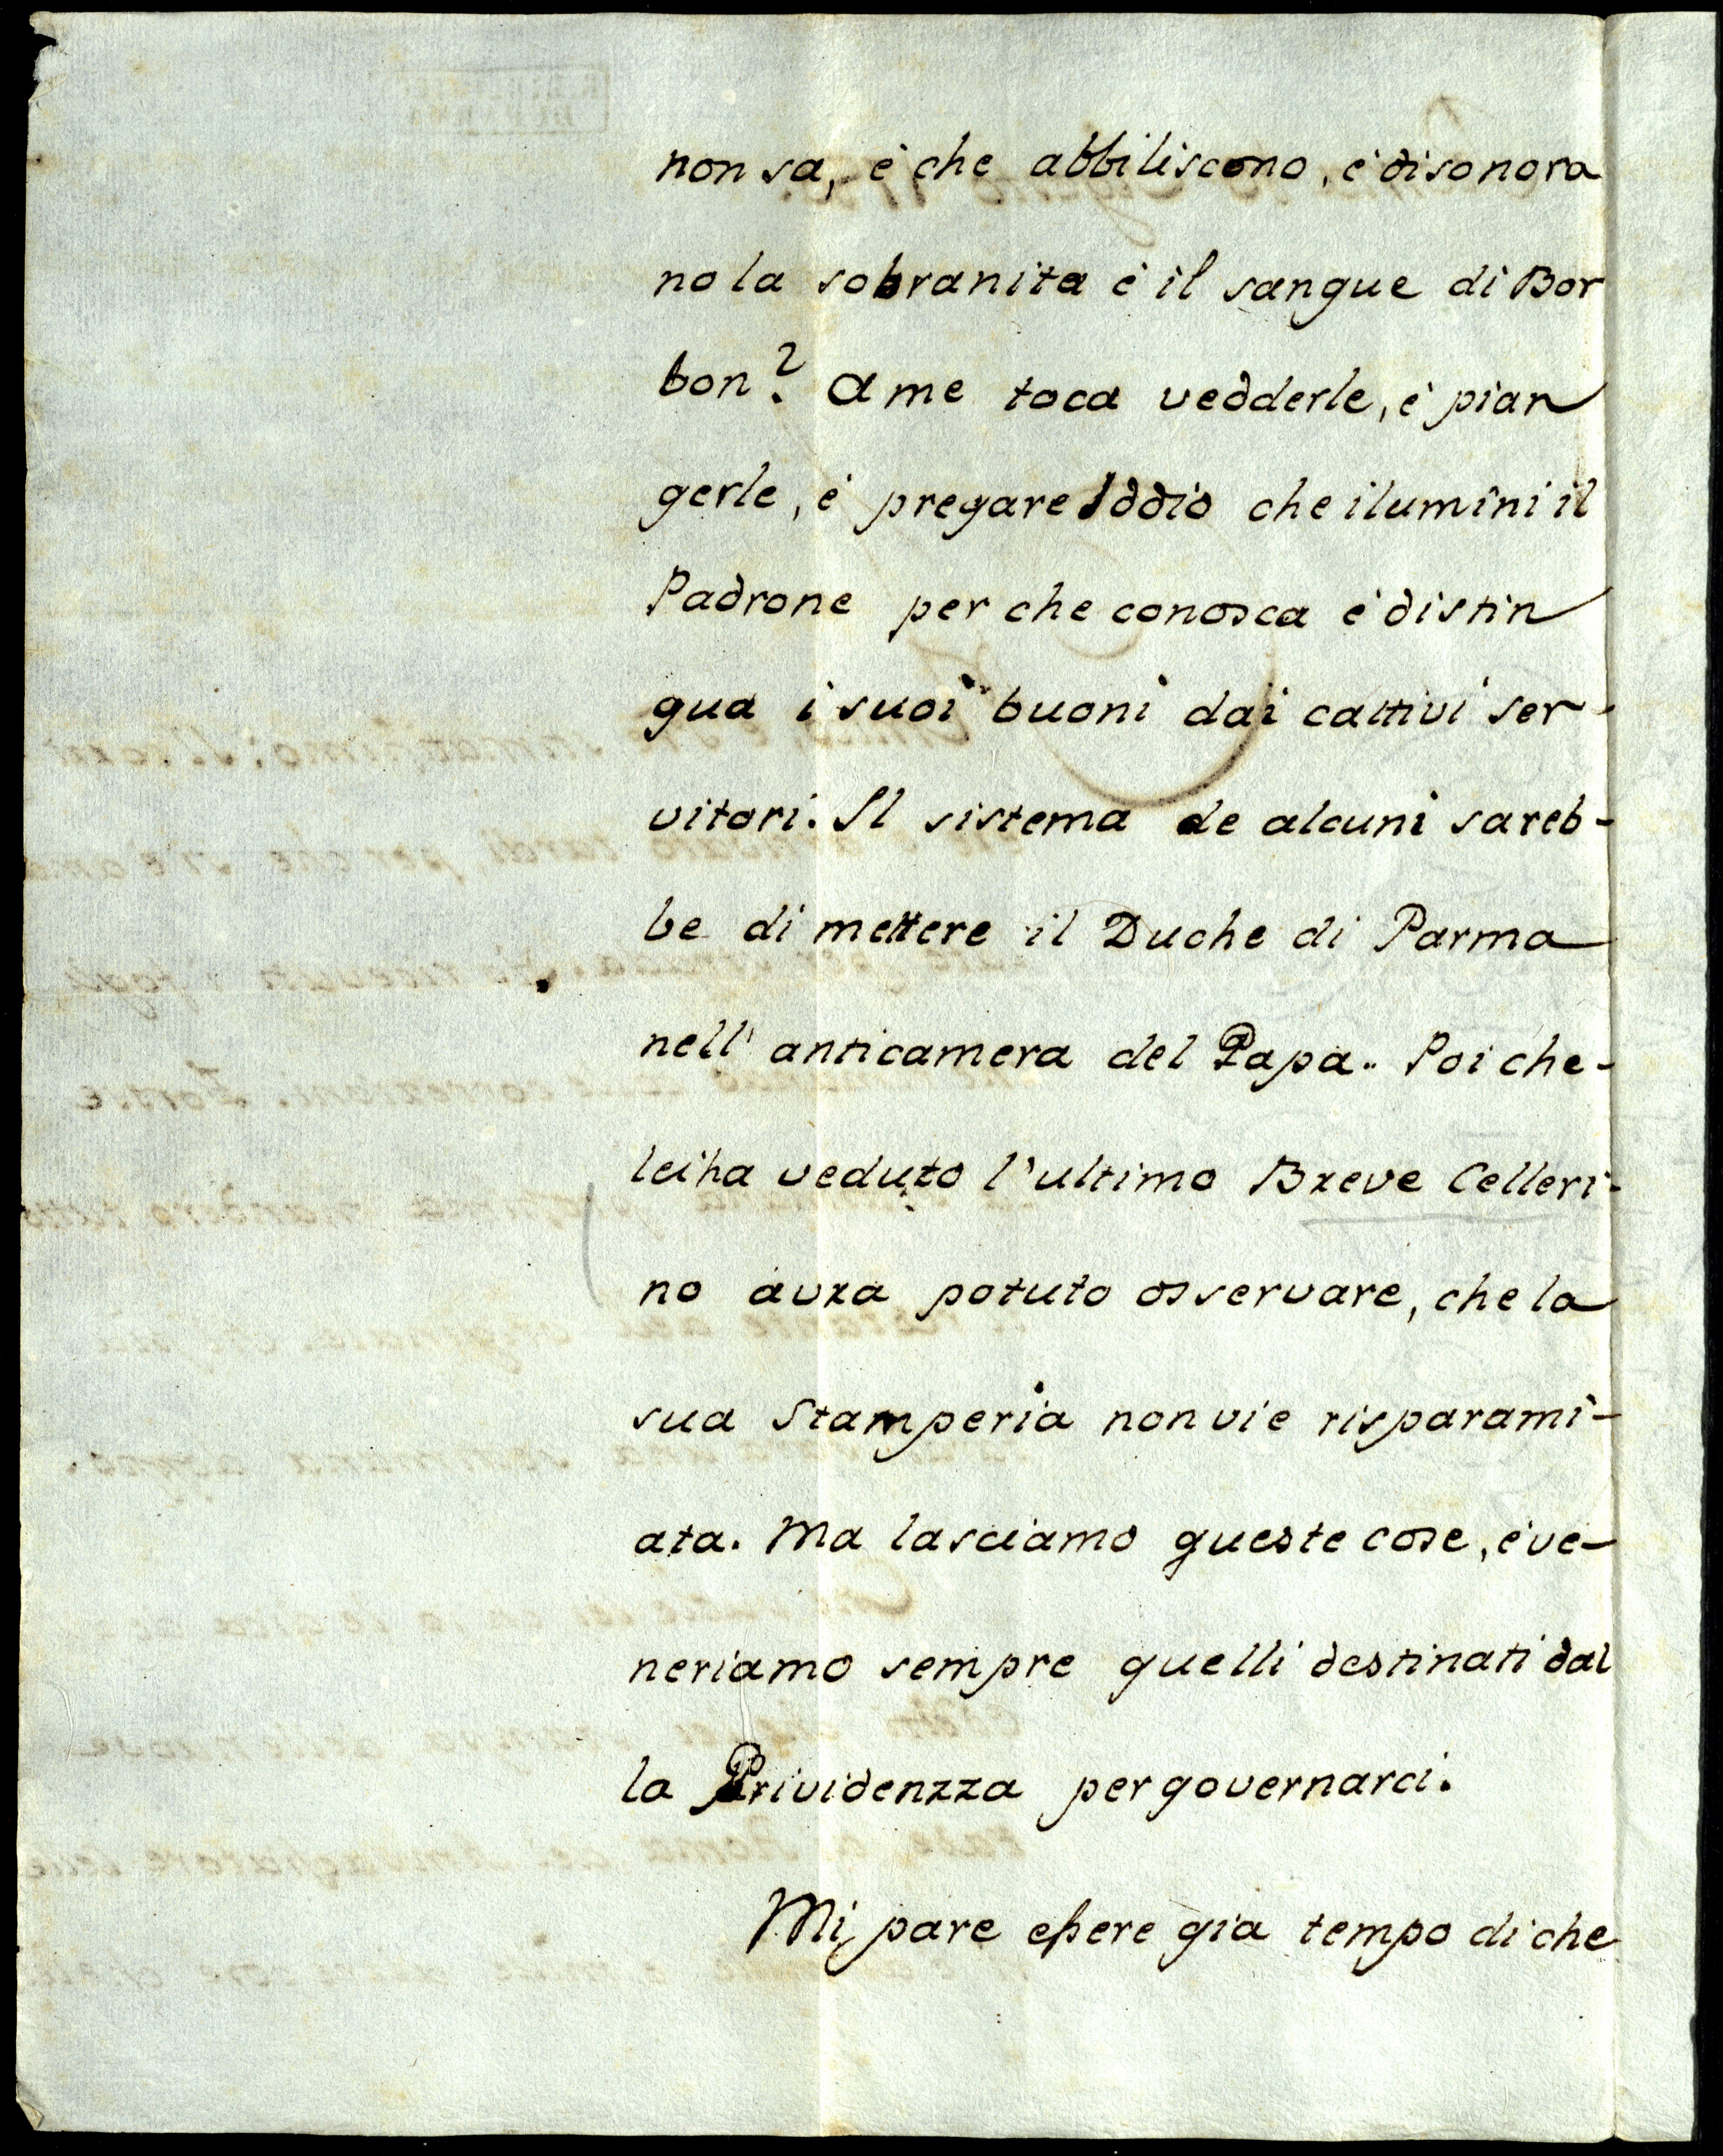 non sa, è che abbiliscono, è disonora
no la sobranita è il sangue di Bor
bon? A me toca vedderle, è pian
gerle, è pregare Iddio che ilumini il
Padrone per che conosca è distin
gua i suoi buoni dai cattivi ser-
vitori. Il sistema de alcuni sareb-
be di mettere il Duche di Parma
nell' anticamera del Papa. Poi che-
lei ha veduto l'ultimo Breve Celleri-
no avra potuto osservare, che la
sua Stamperia non vi e risparami-
ata. Ma lasciamo queste cose, è ve-
neriamo sempre quelli destinati dal
la Prividenzza per governarci.
Mi pare essere gia tempo di che